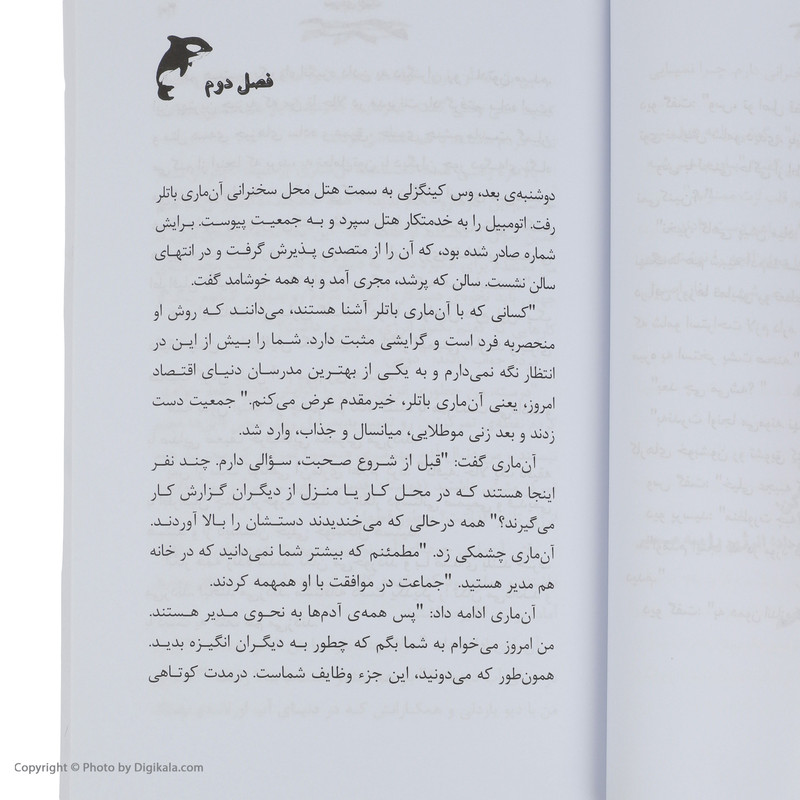 فصل دوم
دوشنبه‌ی بعد، وس کینگزلی به سمت هتل محل سخنرانی آن‌ماری باتلر
رفت. اتومبیل را به خدمتکار هتل سپرد و به جمعیت پیوست. برایش
شماره صادر شده بود، که آن را از متصدی پذیرش گرفت و در انتهای
سالن نشست. سالن که پرشد، مجری آمد و به همه خوشامد گفت.
"کسانی که با آن‌ماری باتلر آشنا هستند، می‌دانند که روش او
منحصربه فرد است و گرایشی مثبت دارد. شما را بیش از این در
انتظار نگه نمی‌دارم و به یکی از بهترین مدرسان دنیای اقتصاد
امروز، یعنی آن‌ماری باتلر، خیرمقدم عرض می‌کنم." جمعیت دست
زدند و بعد زنی موطلایی، میانسال و جذاب، وارد شد.
آن‌ماری گفت: "قبل از شروع صحبت، سؤالی دارم. چند نفر
اینجا هستند که در محل کار یا منزل از دیگران گزارش کار
می‌گیرند؟" همه درحالی که می‌خندیدند دستشان را بالا آوردند.
آن‌ماری چشمکی زد. "مطمئنم که بیشتر شما نمی‌دانید که در خانه
هم مدیر هستید. "جماعت در موافقت با او همهمه کردند.
آن‌ماری ادامه داد: "پس همه‌ی آدم‌ها به نحوی مدیر هستند.
من امروز می‌خوام به شما بگم که چطور به دیگران انگیزه بدید.
همون‌طور که می‌دونید، این جزء وظایف شماست. درمدت کوتاهی
Copyright © Photo by Digikala.com